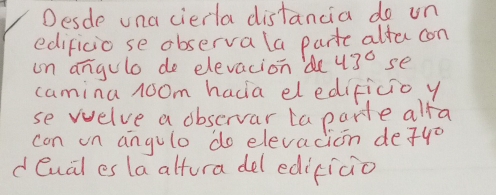 Desde una cierta distancia de un
edificio se observa la parte alta con
un angulo de elevación de 43° se
camina 100m hacia el edificio y
se vuelve a observar la parte alta
con un angulo de elevación de 74°
¿Cuál es la altura del edificio